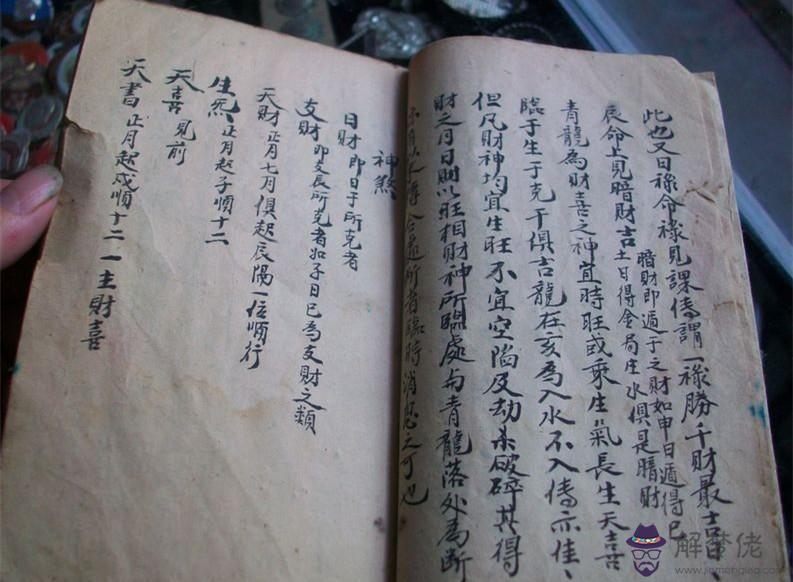 此也又曰祿命祿見課傳謂一祿勝千財最吉日
辰命上見暗財吉暗財即遁干之財如申日遁得巳
土日得金局庄水俱是暗財
青龍為財喜之神宜時旺或乘生氣長生天喜
臨于生于克干俱吉龍在亥為入水不入傳亦佳
但凡財神均宜生旺不宜空陷及劫杀破碎其得
財之月日則以旺相財神所臨處与青龍落处為断
合 所者臨時消息之可也
神煞
日財即日于所克者
支財即支辰所克者如子日巳為支財之類
天財正月七月俱起辰陽一位順行
生炁正月起子順十二
天喜見前
天書正月起戍順十二一主財喜
解梦佬
www.jiemenglao.com